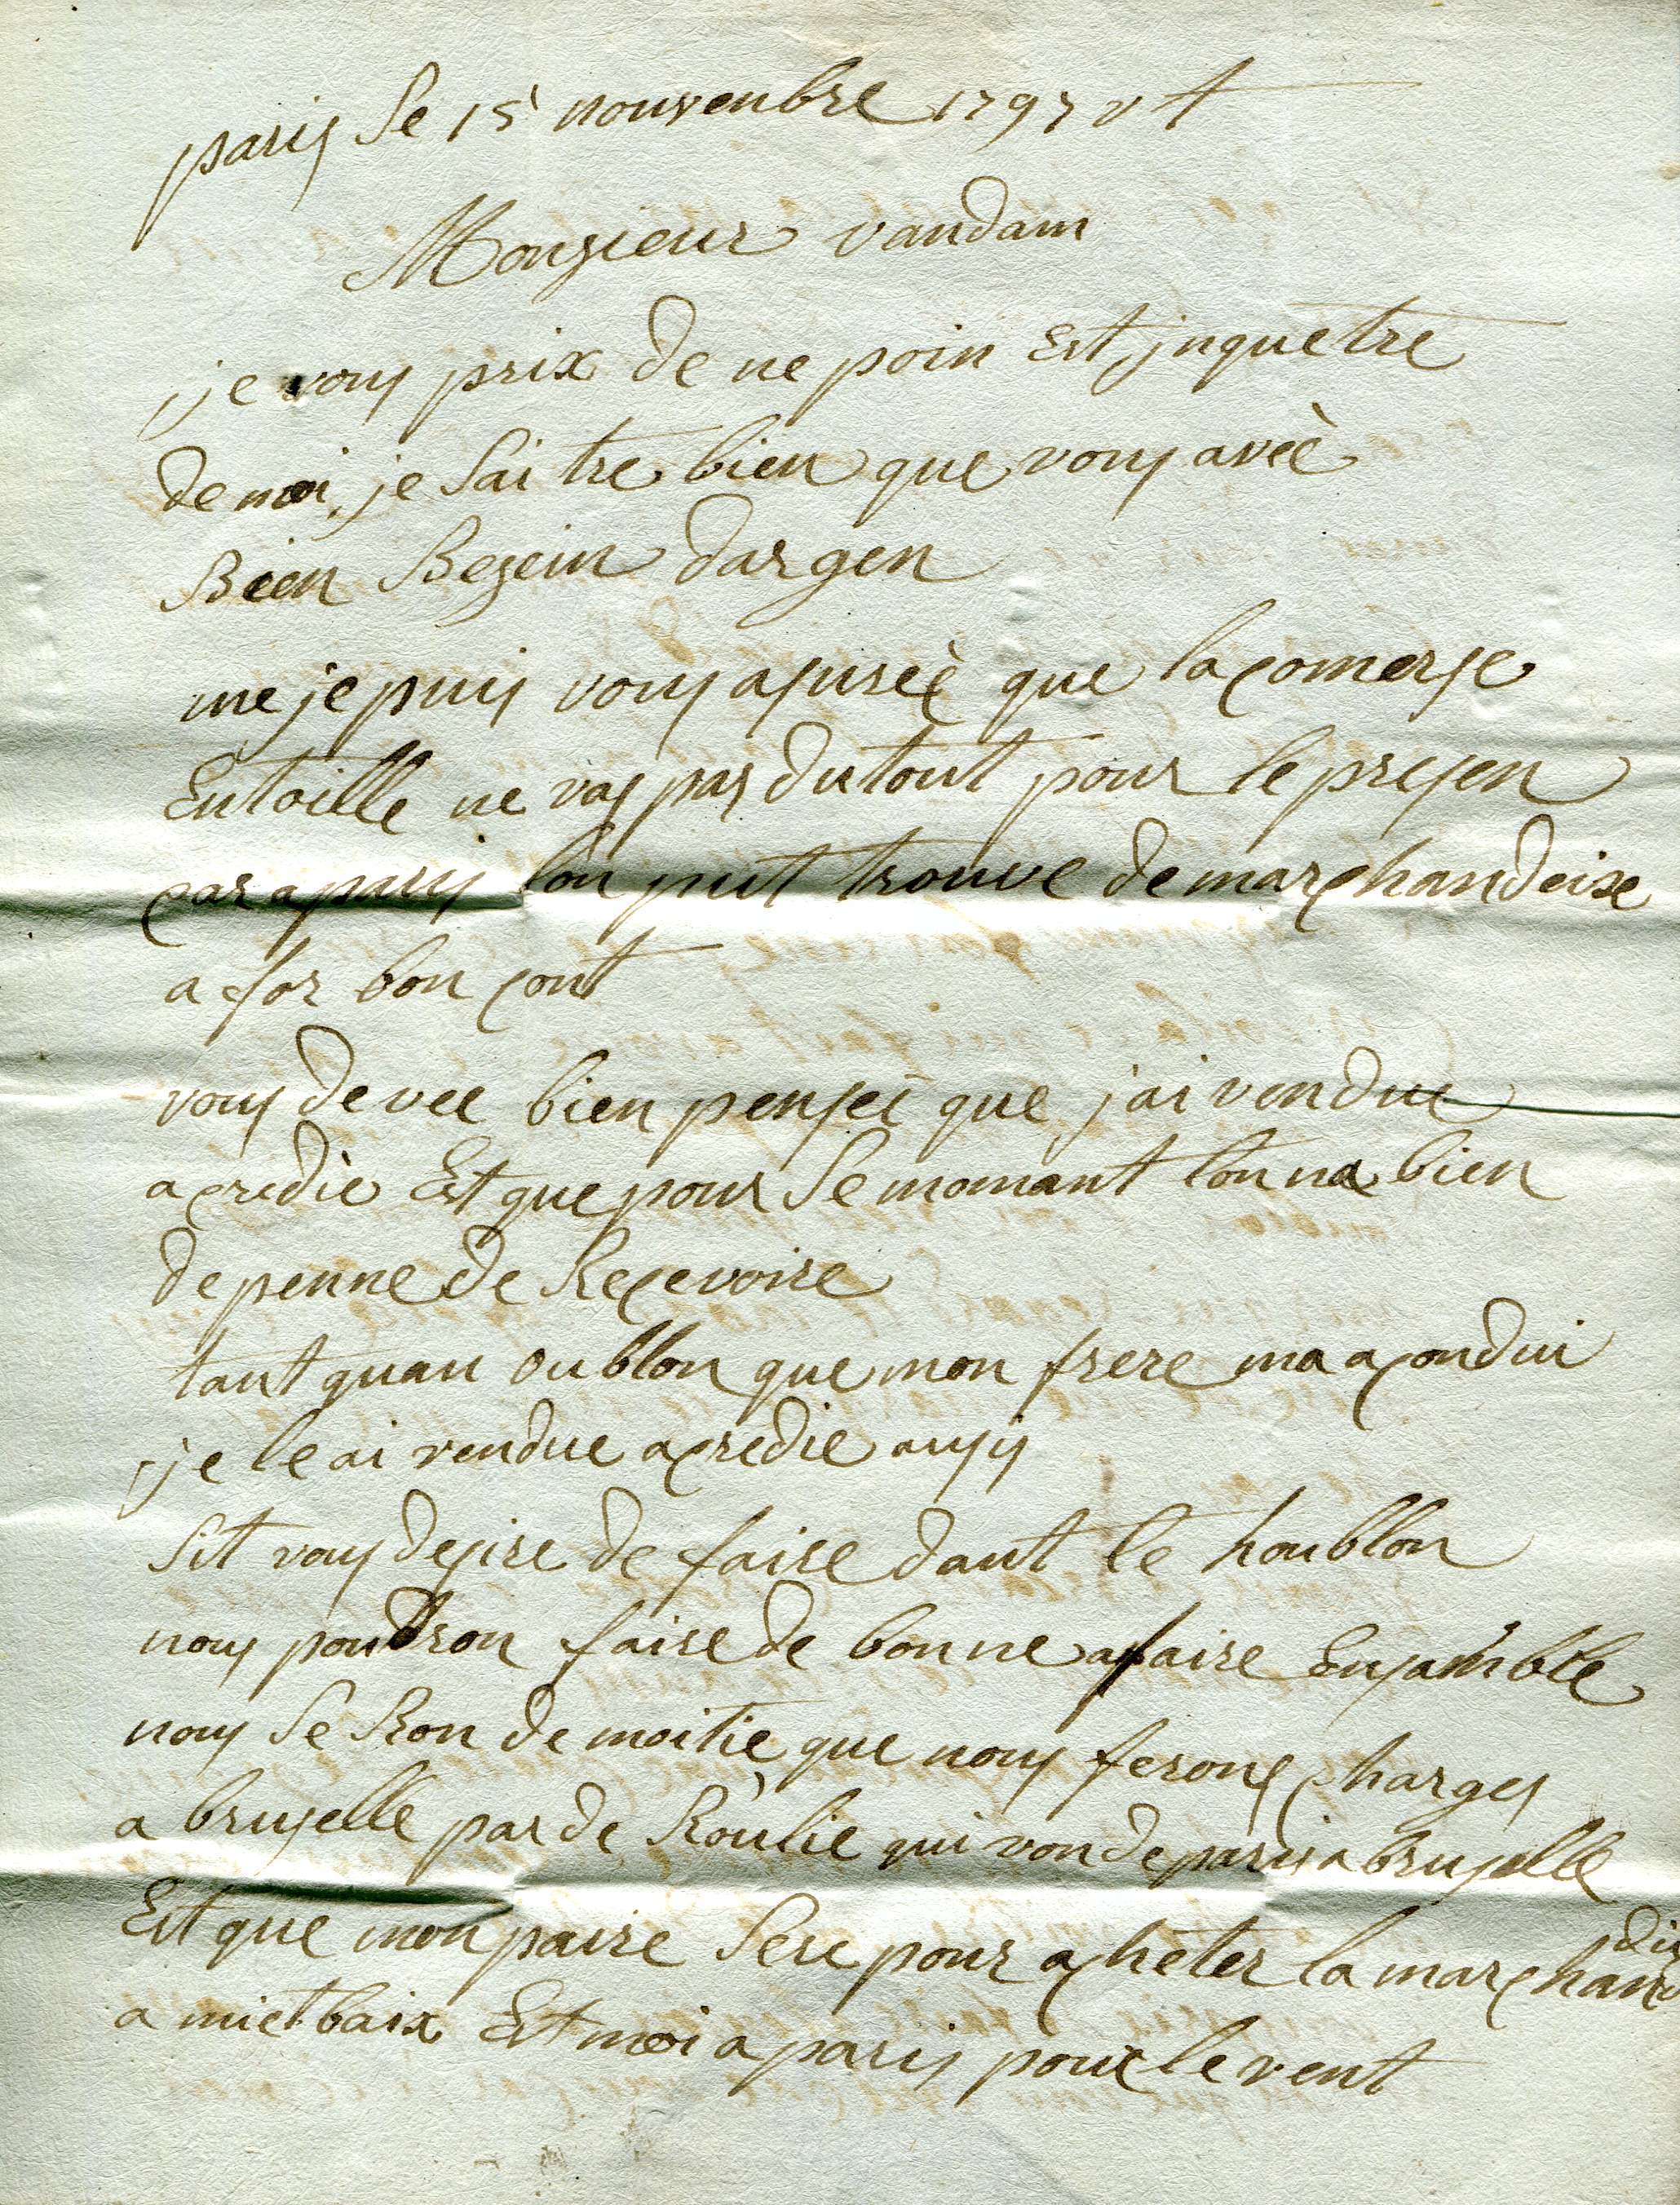 paris le 15 nouvenbre 1797 v st
Monsieur vandam
je vous prix de ne poin Est jnquetre
de moi, je sai tre bien que vous aveè
Bien Besein dargen
me je puis vous asureè que la comerse
Entoille ne vas pas du tout pour le presen
car a paris lon put trouve de marchandeise
a for bon cont
vous de vee bien penseè que j'ai vendue
a credie Est que pour se momant lon na bien
de penne de Recevoire
tant quan oublon que mon frere ma a condui
je le ai vendue a credie ausis
sit vous desire de faire dant le houblon
nous poudron faire de bonne afaire Ensamble
nous se Ron de moitie que nous ferons charges
a bruselle par de Roulie qui von de paris a bruselle
Est que mon paire sere pour acheter la marchandis
a miet baix Est moi a paris pour le vent